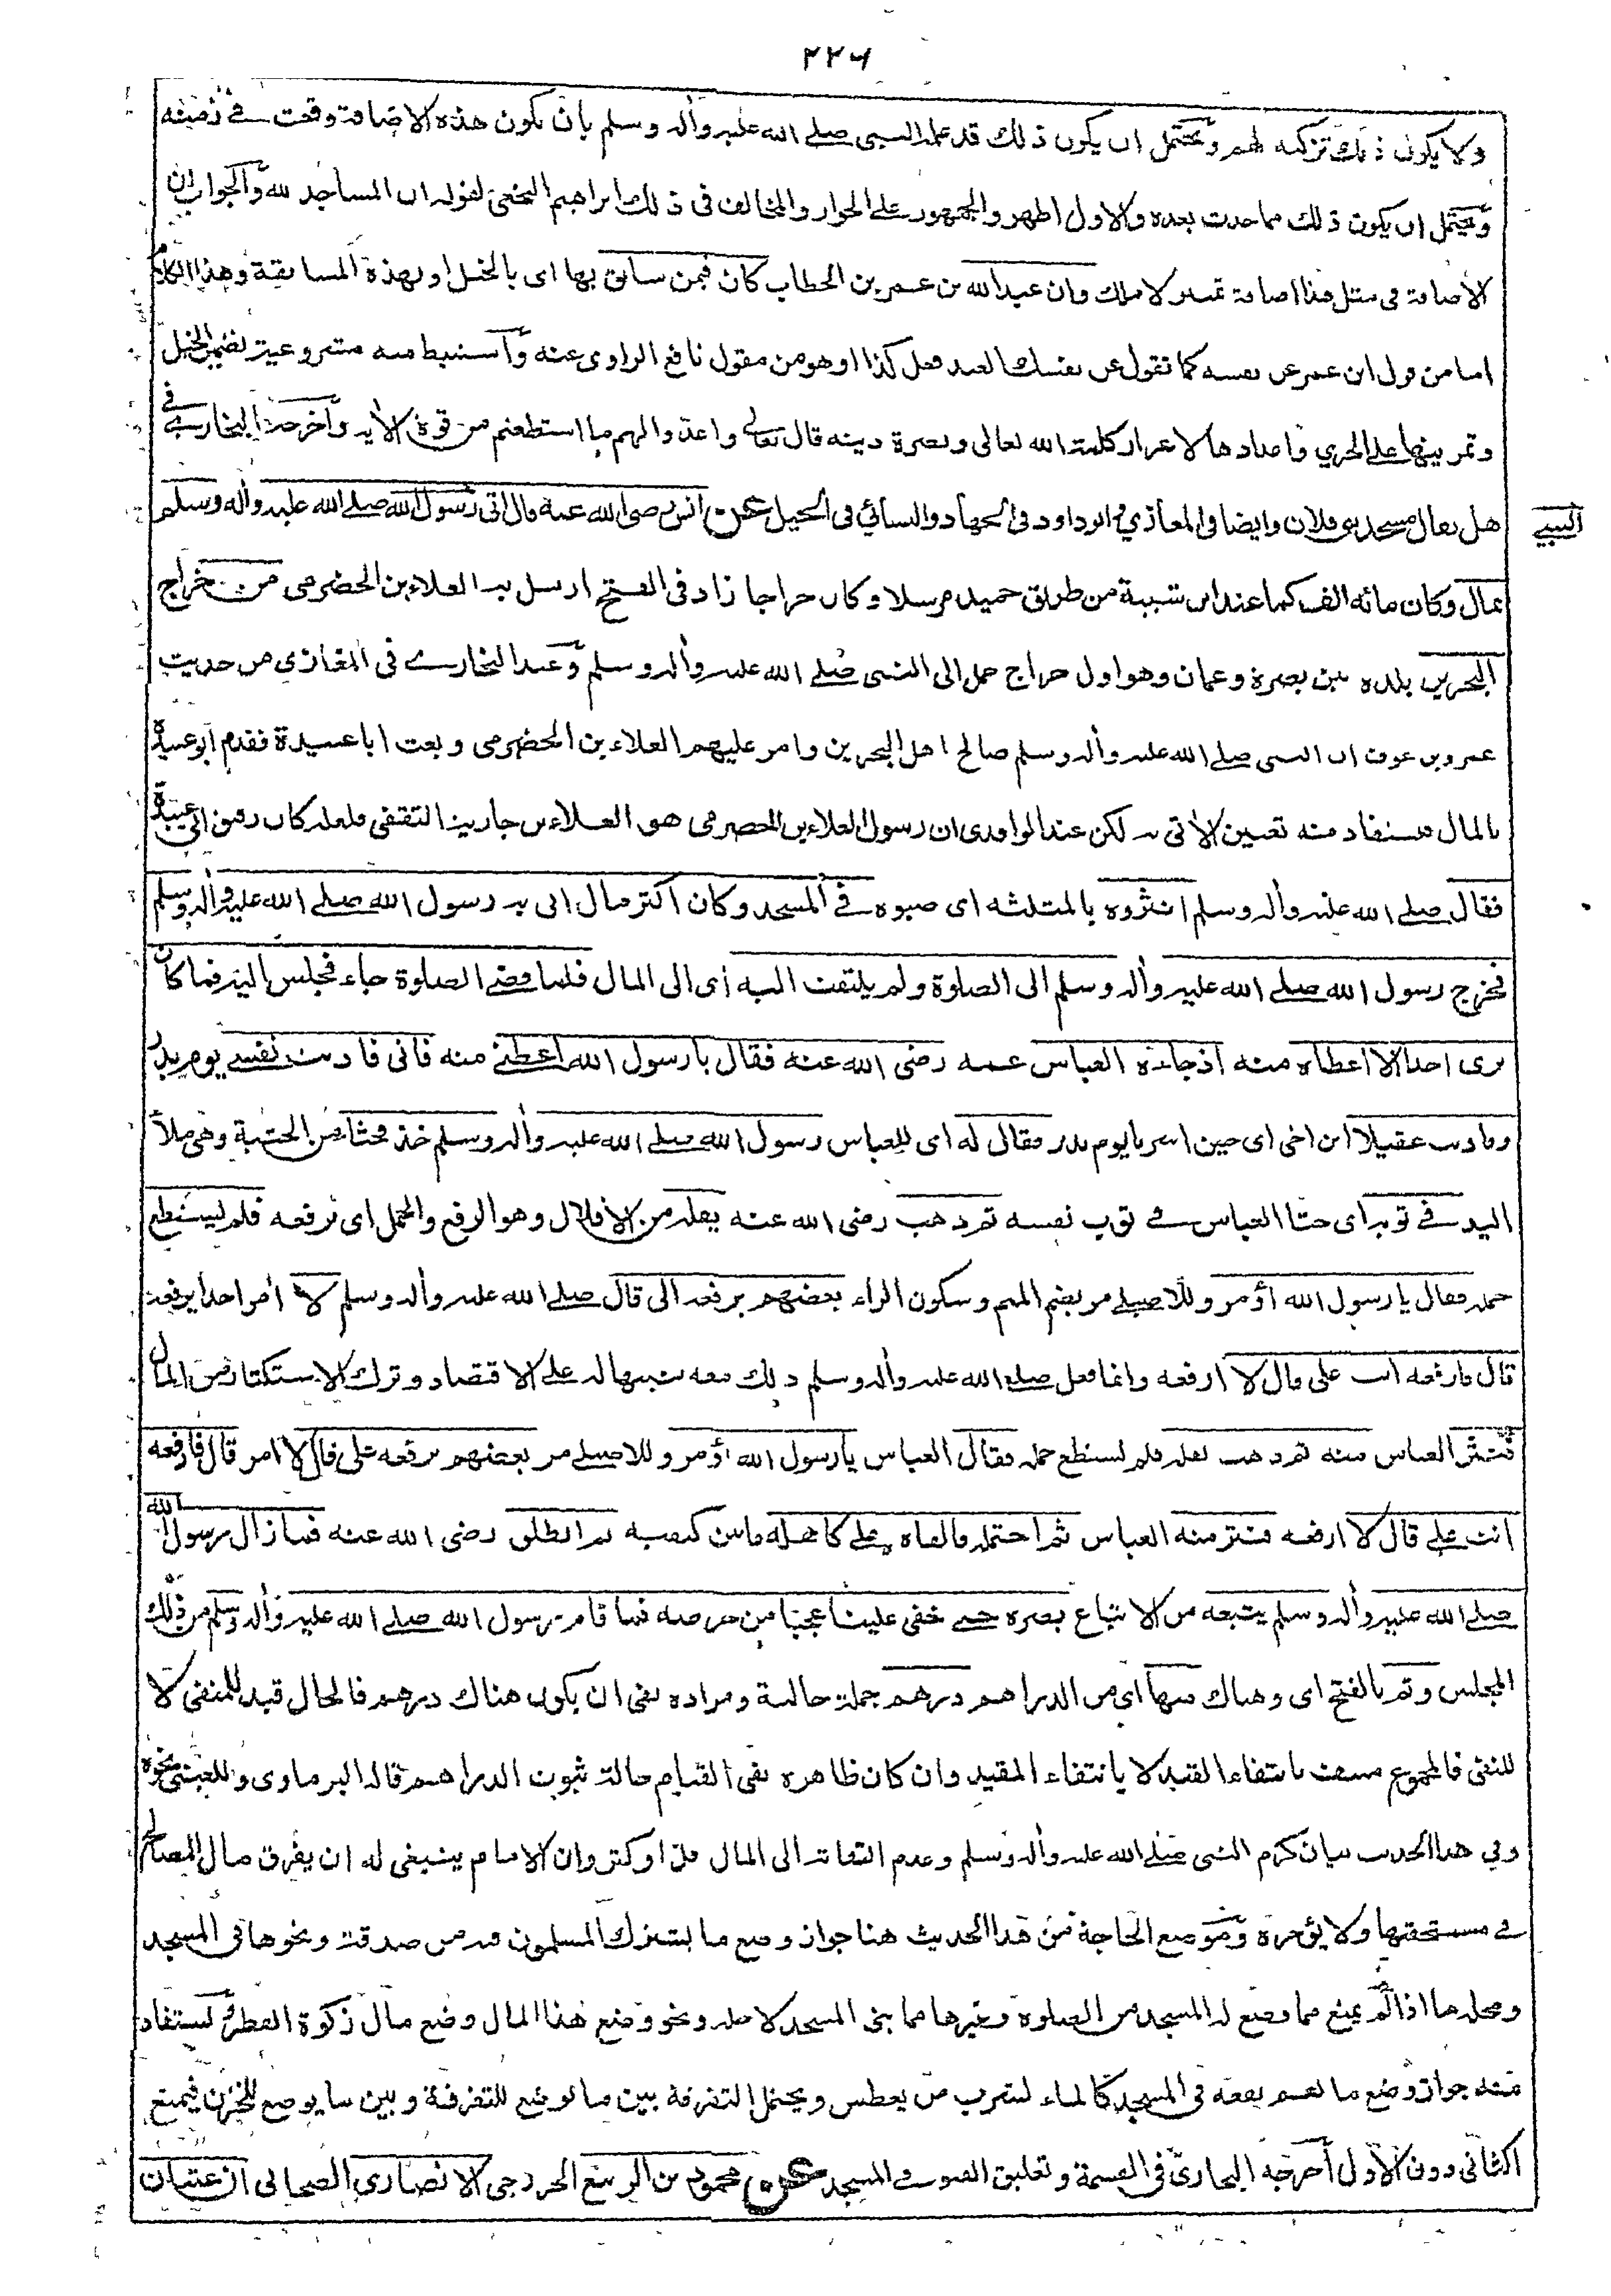 ٢٢٦
ولا يكون ذلك تزكية لهم ويحتمل ان يكون ذلك قد علمه النبى صلے الله عليه وأله وسلم بان يكون هذه الاضافة وقعت فے زمنه
ويحتمل ان يكون ذلك مما حدث بعده والاول اظهر والجمهور على الجواز والمخالف فى ذلك ابراهيم النخعى لقوله ان المساجد لله والجواب ان
الاضافة فى مثل هذا اضافة تمييز لا ملك وان عبد الله بن عمر بن الخطاب كان فيمن سابق بها اى بالخيل او بهذه المسابقة وهذا الكلام
اما من قول ابن عمر عن نفسه كما تقول عن نفسك العبد فعل كذا او هو من مقول نافع الراوى عنه وأستنبط منه مشروعية تضمير الخيل
وتمرينها على الجري واعدادها لاعزاز كلمة الله تعالى ونصرة دينه قال تعالے واعدوا لهم ما استطعتم من قوة الأية وأخرجه البخارے فے
هل يقال مسجد بنى فلان وايضا فى المغازي وابو داود فى الجهاد والنسائي فى الخيل عن انس رضى الله عنه قال اتى رسول الله صلے الله عليه وأله وسلم
النبے
بمال وكان مائة الف كما عند ابن شيبة من طريق حميد مرسلا وكان خراجا زاد فى الفتح ارسل به العلاء بن الحضرمى من خراج
البحرين بلدة بين بصرة وعمان وهو اول خراج حمل الى النبى صلے الله عليه وأله وسلم وعند البخارے فى المغازي من حديث
عمرو بن عوف ان النبى صلے الله عليه وأله وسلم صالح اهل البحرين وامر عليهم العلاء بن الحضرمى وبعث ابا عبيدة فقدم ابو عبيدة
بالمال فيستفاد منه تعيين الأتى به لكن عند الواقدى ان رسول العلاء بن الحضرمى هو العلاء بن جارية الثقفى فلعله كان رفيق ابى عبيدة
فقال صلے الله عليه وأله وسلم انثروه بالمثلثه اى صبوه فے المسجد وكان اكثر مال اتى به رسول الله صلے الله عليه وأله وسلم
فخرج رسول الله صلے الله عليه وأله وسلم الى الصلوة ولم يلتفت اليه أى الى المال فلما قضے الصلوة جاء فجلس اليه فما كان
يرى احدا الا اعطاه منه اذ جاءه العباس عمه رضى الله عنه فقال يا رسول الله اعطنے منه فانى فاديت نفسے يوم بدر
وفاديت عقيلا ابن اخى اى حين اسرنا يوم بدر فقال له اى للعباس رسول الله صلے الله عليه وأله وسلم خذ فحثا من الحثية وهى ملأ
اليد فے ثوبه اى حثا العباس فے ثوب نفسه ثم ذهب رضى الله عنه يقله من الاقلال وهو الرفع والحمل اى يرفعه فلم يستطع
حمله فقال يا رسول الله أؤمر وللاصيلے مر بضم الميم وسكون الراء بعضهم يرفعه الى قال صلے الله عليه وأله وسلم لا أمر احدا يرفعه
قال فارفعه انت على قال لا ارفعه وانما فعل صلے الله عليه وأله وسلم ذلك معه تنبيها له على الاقتصاد وترك الاستكثار من المال
فنثر العباس منه ثم ذهب يقله فلم يستطع حمله فقال العباس يا رسول الله أؤمر وللاصيلے مر بعضهم يرفعه على قال لا امر قال فارفعه
انت علے قال لا ارفعه فنثر منه العباس ثم احتمله فالقاه علے كاهله مابين كتفيه ثم انطلق رضى الله عنه فما زال رسول الله
صلے الله عليه وأله وسلم يتبعه من الاتباع بصره حتے خفى علينا عجبا من حرصه فما قام رسول الله صلے الله عليه وأله وسلم من ذلك
المجلس وثم بالفتح اى وهناك منها اي من الدراهم درهم جملة حالية ومراده نفى ان يكون هناك درهم فالحال قيد للمنفى لا
للنفى فالمجموع منتف بانتفاء القيد لا بانتفاء المقيد وان كان ظاهره نفى القيام حالة ثبوت الدراهم قاله البرماوى وللعينى نحوه
وفي هذا الحديث بيان كرم النبى صلے الله عليه وأله وسلم وعدم التفاته الى المال قل او كثر وان الامام ينبغى له ان يفرق مال المصالح
فے مستحقيها ولا يؤخره وموضع الحاجة من هذا الحديث هنا جواز وضع ما يشترك المسلمون فيه من صدقة ونحوها فى المسجد
ومحله ما اذا لم يمنع مما وضع له المسجد من الصلوة وغيرها مما بنى المسجد لاجله ونحو وضع هذا المال وضع مال زكوة الفطر ويستفاد
منه جواز وضع ما يعم نفعه فى المسجد كالماء لشرب من يعطش ويحتمل التفرقة بين ما يوضع للتفرقة وبين ما يوضع للخزن فيمنع
الثانى دون الأول أخرجه البخارى فى القسمة وتعليق القنو فے المسجد عن محمود بن الربيع الخزرجى الانصارى الصحابى ان عتبان